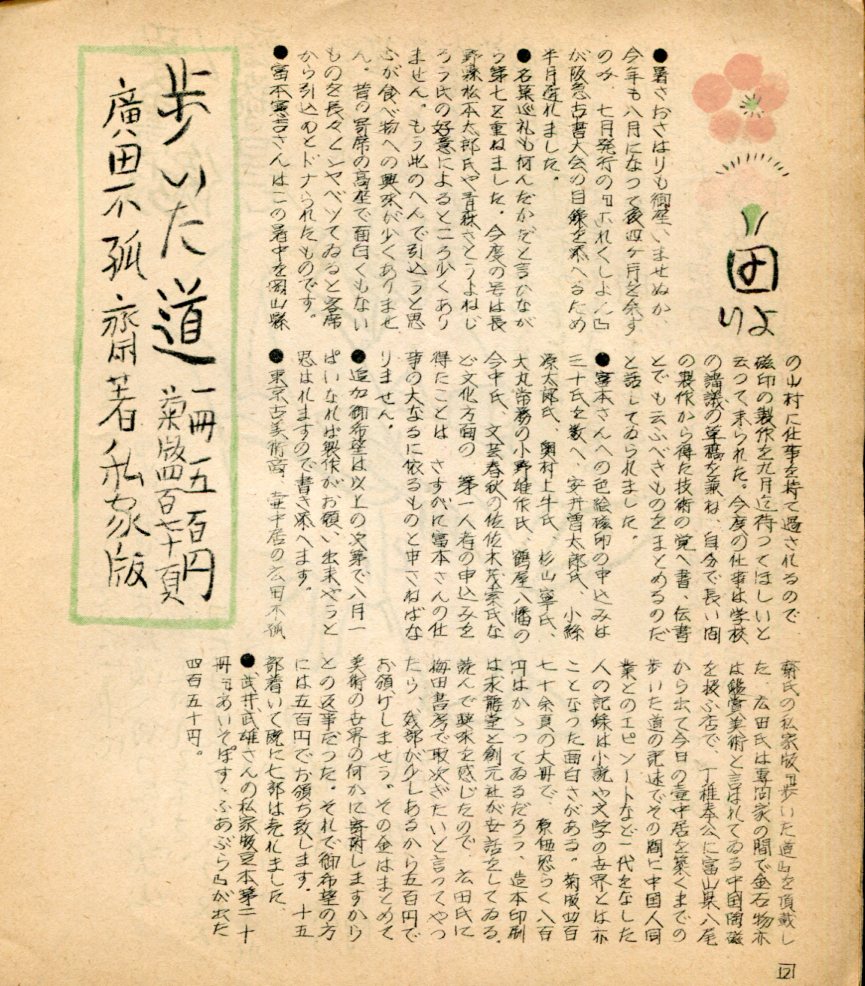 田
より
●暑さおさはりも御座いませぬか、
今年も八月になつて後四ケ月を余す
のみ 七月発行の『これくしよん』
が阪急古書大会の目録を添へるため
半月遅れました。
●名菓巡礼も何んだかだと言ひなが
ら第七を重ねました。今度の号は長
野縣松本太郎氏や青森さとうよねじ
ろう氏の好意によるところ少くあり
ません。もう此のへんで引込うと思
ふが食べ物への興味が少くありませ
ん。昔の寄席の高座で面白くもない
ものを長々シヤベツてゐると客席
から引込めとドナられたものです。
●富本憲吉さんはこの暑中を岡山縣
の山村に仕事を持て過されるので
磁印の製作を九月迄待つてほしいと
云つて来られた。今度の仕事は学校
の講議の草稿を兼ね、自分で長い間
の製作から得た技術の覚へ書、伝書
とでも云ふべきものをまとめるのだ
と話してゐられました。
●富本さんへの色絵磁印の申込みは
三十氏を数へ、安井曽太郎氏、小絲
源太郎氏、奥村土牛氏、杉山寧氏、
大丸常務の小野雄作氏、鶴屋八幡の
今中氏、文芸春秋の佐佐木茂索氏な
ど文化方面の 第一人者の申込みを
得たことは さすがに富本さんの仕
事の大なるに依るものと申さねばな
りません。
●追加御希望は以上の次第で八月一
ぱいなれば製作がお願い出来やうと
思はれますので書き添へます。
●東京古美術商、壷中居の広田不孤
斎氏の私家版『歩いた道』を頂戴し
た、広田氏は専門家の間で金石物亦
は鑑賞美術と言はれてゐる中国陶磁
を扱ふ店で、丁稚奉公に富山県八尾
から出て今日の壷中居を築くまでの
歩いた道の記述でその間に中国人同
業とのエピソートなど一代をなした
人の記録は小説や文学の世界とは亦
ことなつた面白さがある。菊版四百
七十余頁の大冊で、原価恐らく八百
円はかゝつてゐるだろう、造本印刷
は求龍堂と創元社が世話をしてゐる。
読んで興味を感じたので、広田氏に
梅田書房で取次ぎたいと言つてやつ
たら 残部が少しあるから五百円で
お頒けしませう。その金はまとめて
美術の世界の何かに寄附しますから
との返事だつた。それで御希望の方
には五百円でお頒ち致します。十五
部着いて既に七部は売れました、
●武井武雄さんの私家版豆本第二十
冊『あいそぱす・ふあぶら』が出た
四百五十円。
歩いた道 一冊五百円
菊版四百七十頁
廣田不孤齋著私家版
12